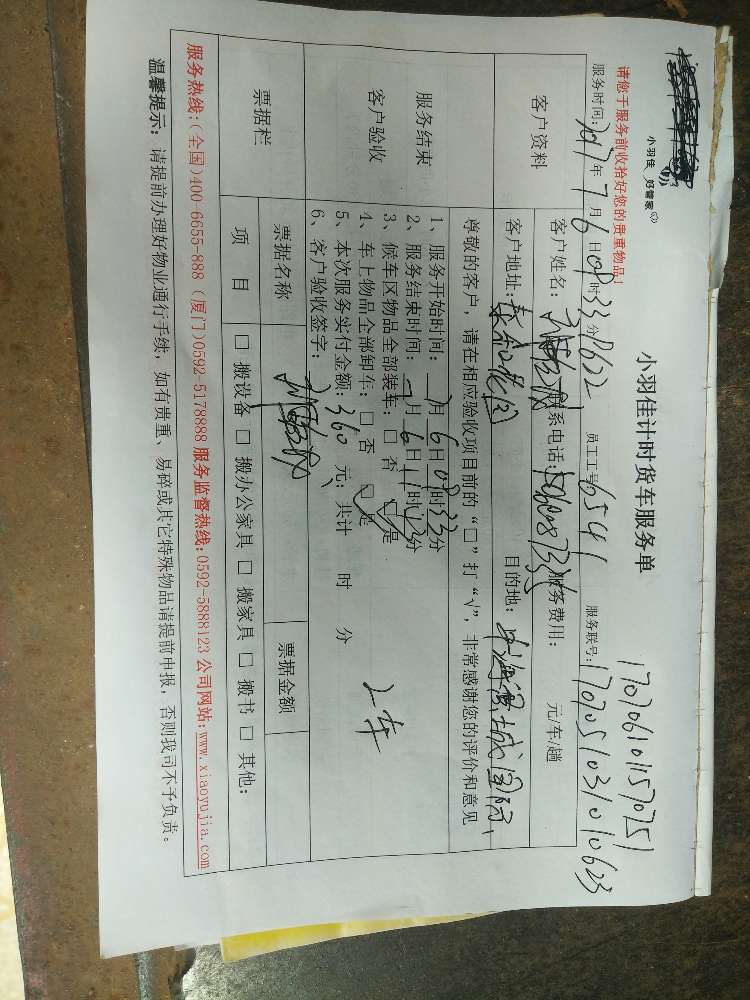 小羽佳 好管家
小羽佳计时货车服务单
1707061011570251
请您于服务前收拾好您的贵重物品！
服务时间：2017年7月6日08时33分 8622 员工工号：6541 服务联号：1707051031010623
客户资料
客户姓名： 联系电话： 服务费用： 元/车/趟
客户地址： 目的地：
尊敬的客户，请在相应验收项目前的“□”打“√”，非常感谢您的评价和意见
服务结束
客户验收
1、服务开始时间：7月6日08时33分
2、服务结束时间：7月6日11时13分
3、候车区物品全部装车：□ 否 □ 是
4、车上物品全部卸车：□ 否 □ 是
5、本次服务实付金额：360 元；共计 时 分
6、客户验收签字：
票据栏
票据名称 票据金额
项 目 □ 搬设备 □ 搬办公家具 □ 搬家具 □ 搬书 □ 其他：
服务热线：(全国)400-6655-888 (厦门)0592-5178888 服务监督热线：0592-5888123 公司网站：www.xiaoyujia.com
温馨提示： 请提前办理好物业通行手续，如有贵重、易碎或其它特殊物品请提前申报，否则我司不予负责。